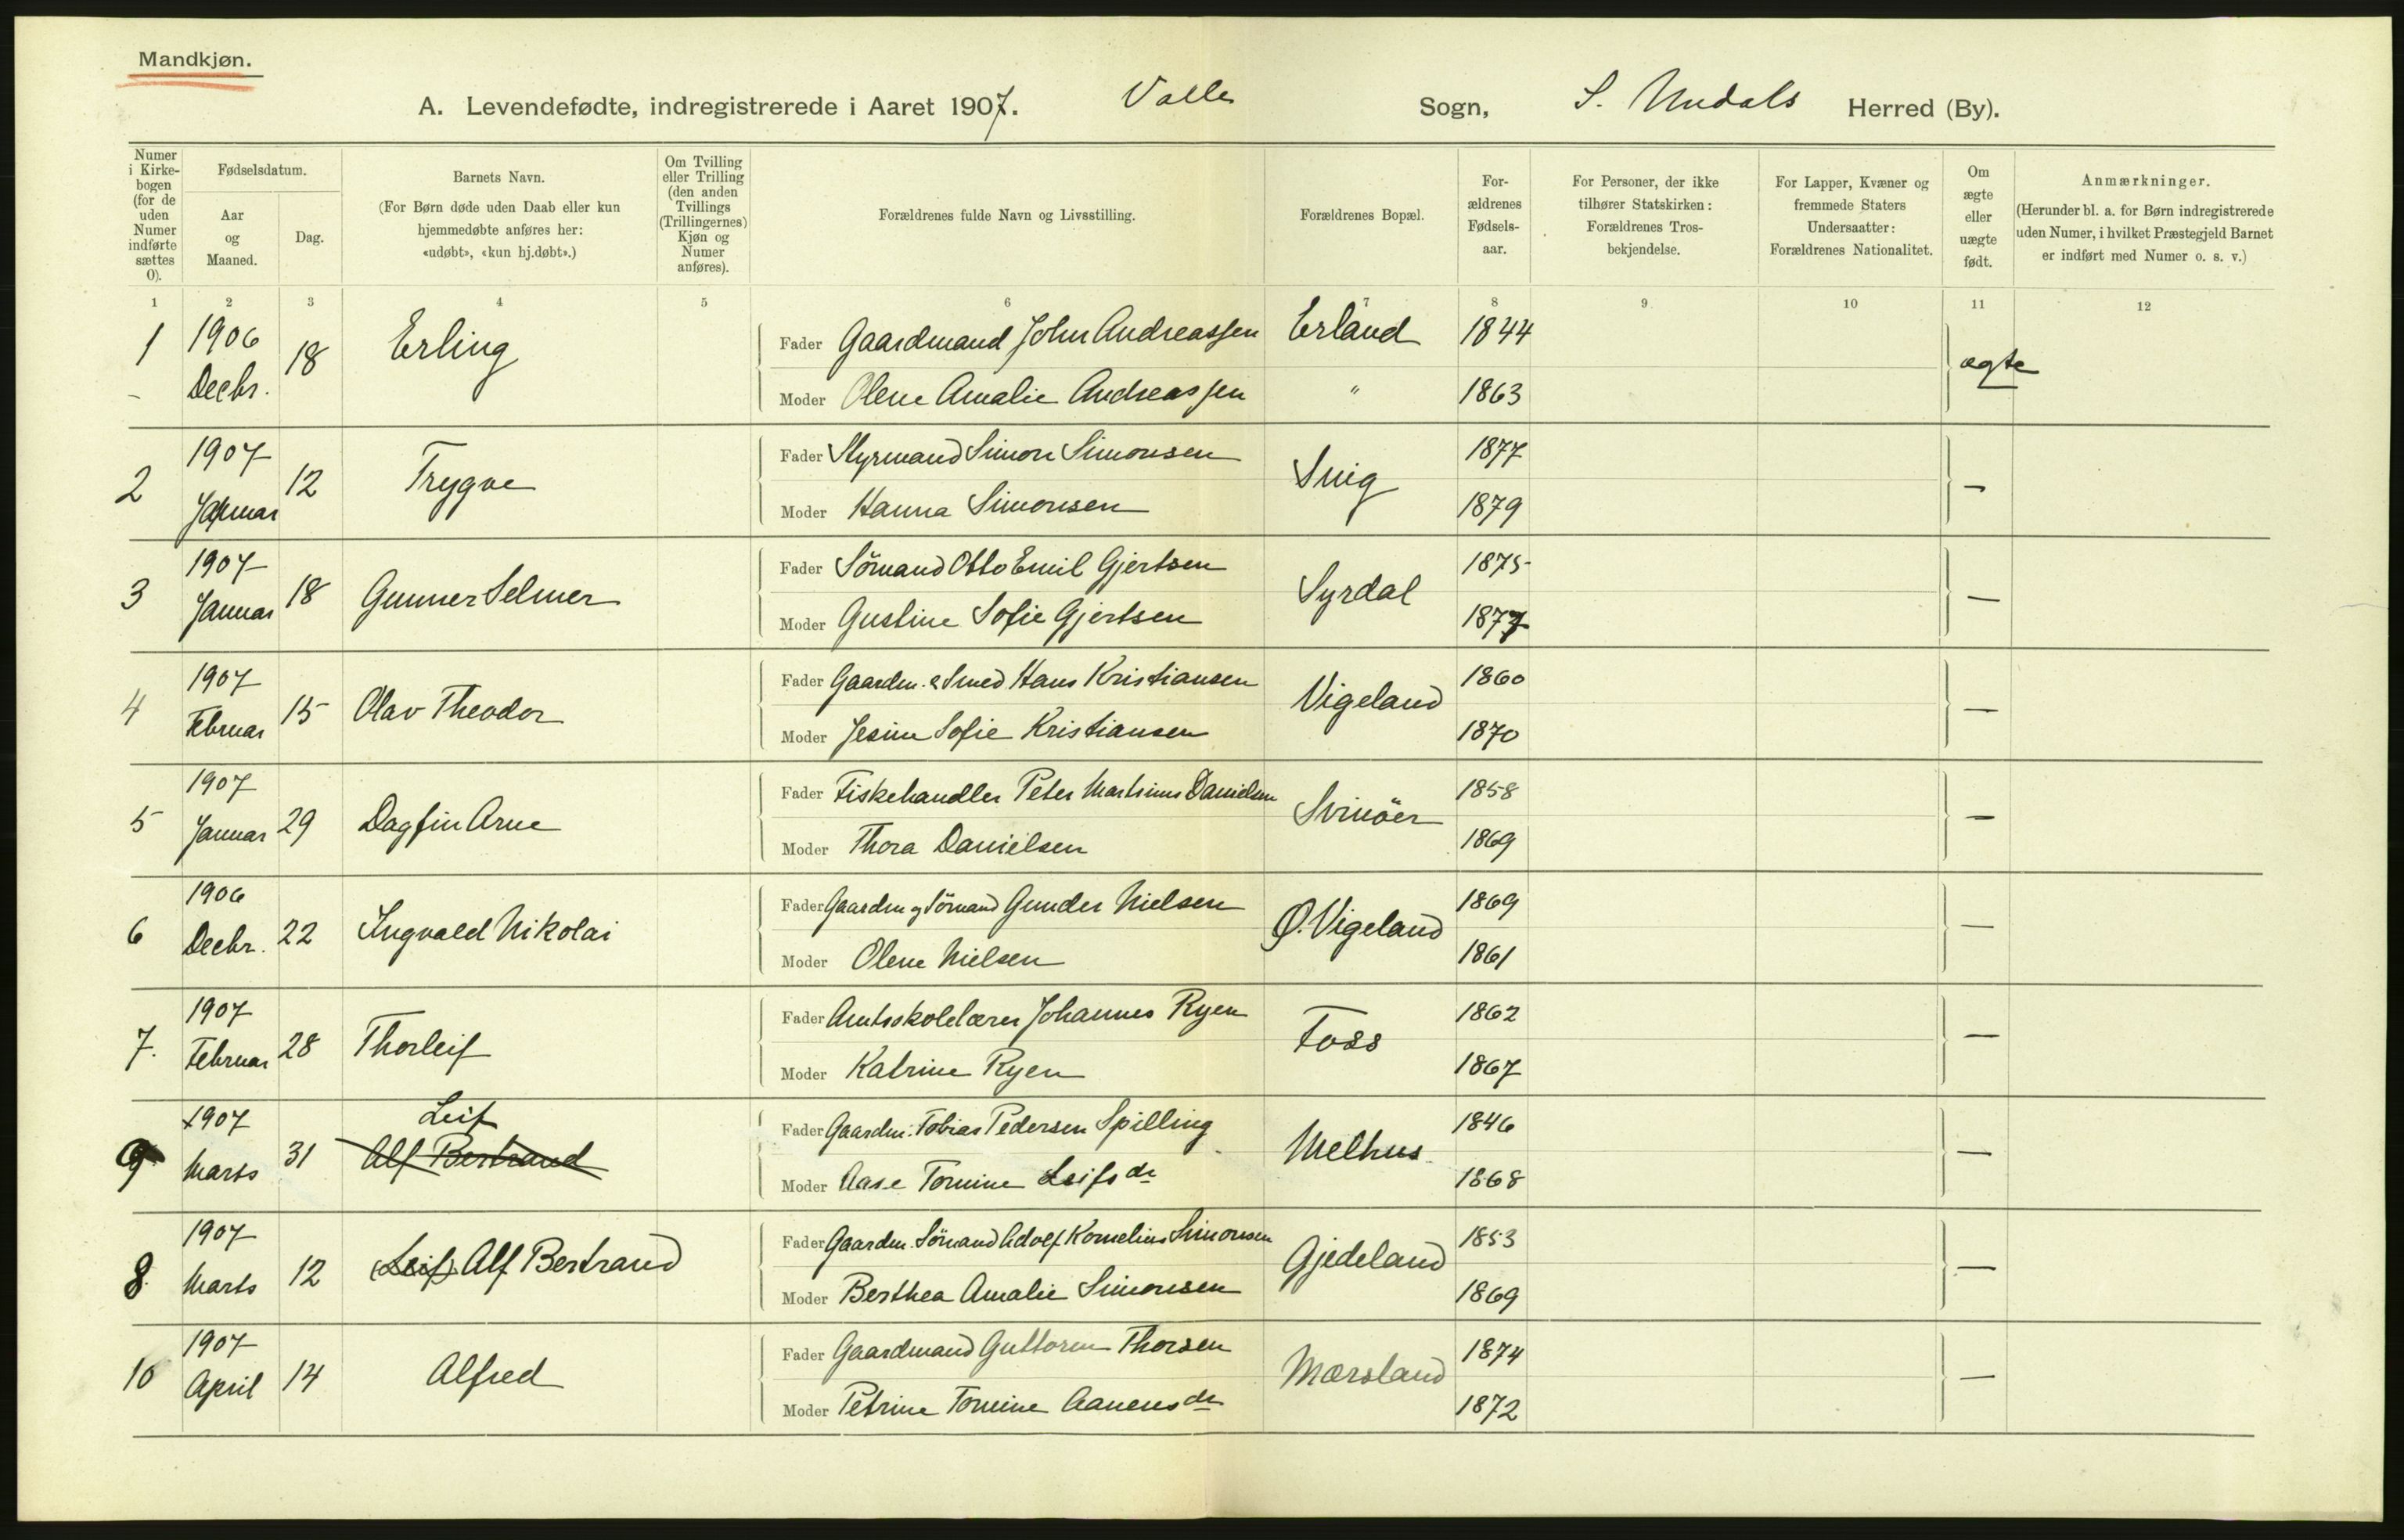 Mandkjøn.
A. Levendefødte, indregistrerede i Aaret 1907. Valle Sogn, S. Undals Herred (By).
Numer i Kirkebogen (for de uden Numer indførte sættes 0).
Fødselsdatum.
Aar og Maaned.
Dag.
Barnets Navn.
(For Børn døde uden Daab eller kun hjemmedøbte anføres her: «udøbt», «kun hj.døbt».)
Om Tvilling eller Trilling (den anden Tvillings (Trillingernes) Kjøn og Numer anføres).
Forældrenes fulde Navn og Livsstilling.
Forældrenes Bopæl.
Forældrenes Fødselsaar.
For Personer, der ikke tilhører Statskirken: Forældrenes Trosbekjendelse.
For Lapper, Kvæner og fremmede Staters Undersaatter: Forældrenes Nationalitet.
Om ægte eller uægte født.
Anmærkninger.
(Herunder bl. a. for Børn indregistrerede uden Numer, i hvilket Præstegjeld Barnet er indført med Numer o. s. v.)
1 2 3 4 5 6 7 8 9 10 11 12
1 1906 Decbr. 18 Erling
Fader Gaardmand John Andreassen Erland 1844 ægte
Moder Olene Amalie Andreassen " 1863
2 1907 Januar 12 Trygve
Fader Styrmand Simon Simonsen Snig 1877 —
Moder Hanna Simonsen 1879
3 1907 Januar 18 Gunner Selmer
Fader Sömand Otto Emil Gjertsen Syrdal 1875 —
Moder Gustine Sofie Gjertsen 1877
4 1907 Februar 15 Olav Theodor
Fader Gaardm. & Smed Hans Kristiansen Vigeland 1860 —
Moder Jesine Sofie Kristiansen 1870
5 1907 Januar 29 Dagfin Arne
Fader Fiskehandler Peter Martinus Danielsen Svinöer 1858 —
Moder Thora Danielsen 1869
6 1906 Decbr. 22 Ingvald Nikolai
Fader Gaardm og Sömand Gunder Nielsen Ø. Vigeland 1869 —
Moder Olene Nielsen 1861
7. 1907 Februar 28 Thorleif
Fader Amtsskolelærer Johannes Ryen Foss 1862 —
Moder Katrine Ryen 1867
9 1907 Marts 31 Leif
Alf Bertrand
Fader Gaardm. Tobias Pedersen Spilling Melhus 1846 —
Moder Aase Tomine Leifsdr 1868
8. 1907 Marts 12 (Leif) Alf Bertrand
Fader Gaardm. Sömand Adolf Kornelius Simonsen Gjedeland 1853 —
Moder Berthea Amalie Simonsen 1869
10 1907 April 14 Alfred
Fader Gaardmand Guttorm Thorsen Mærsland 1874 —
Moder Petrine Tomine Aanensdr 1872